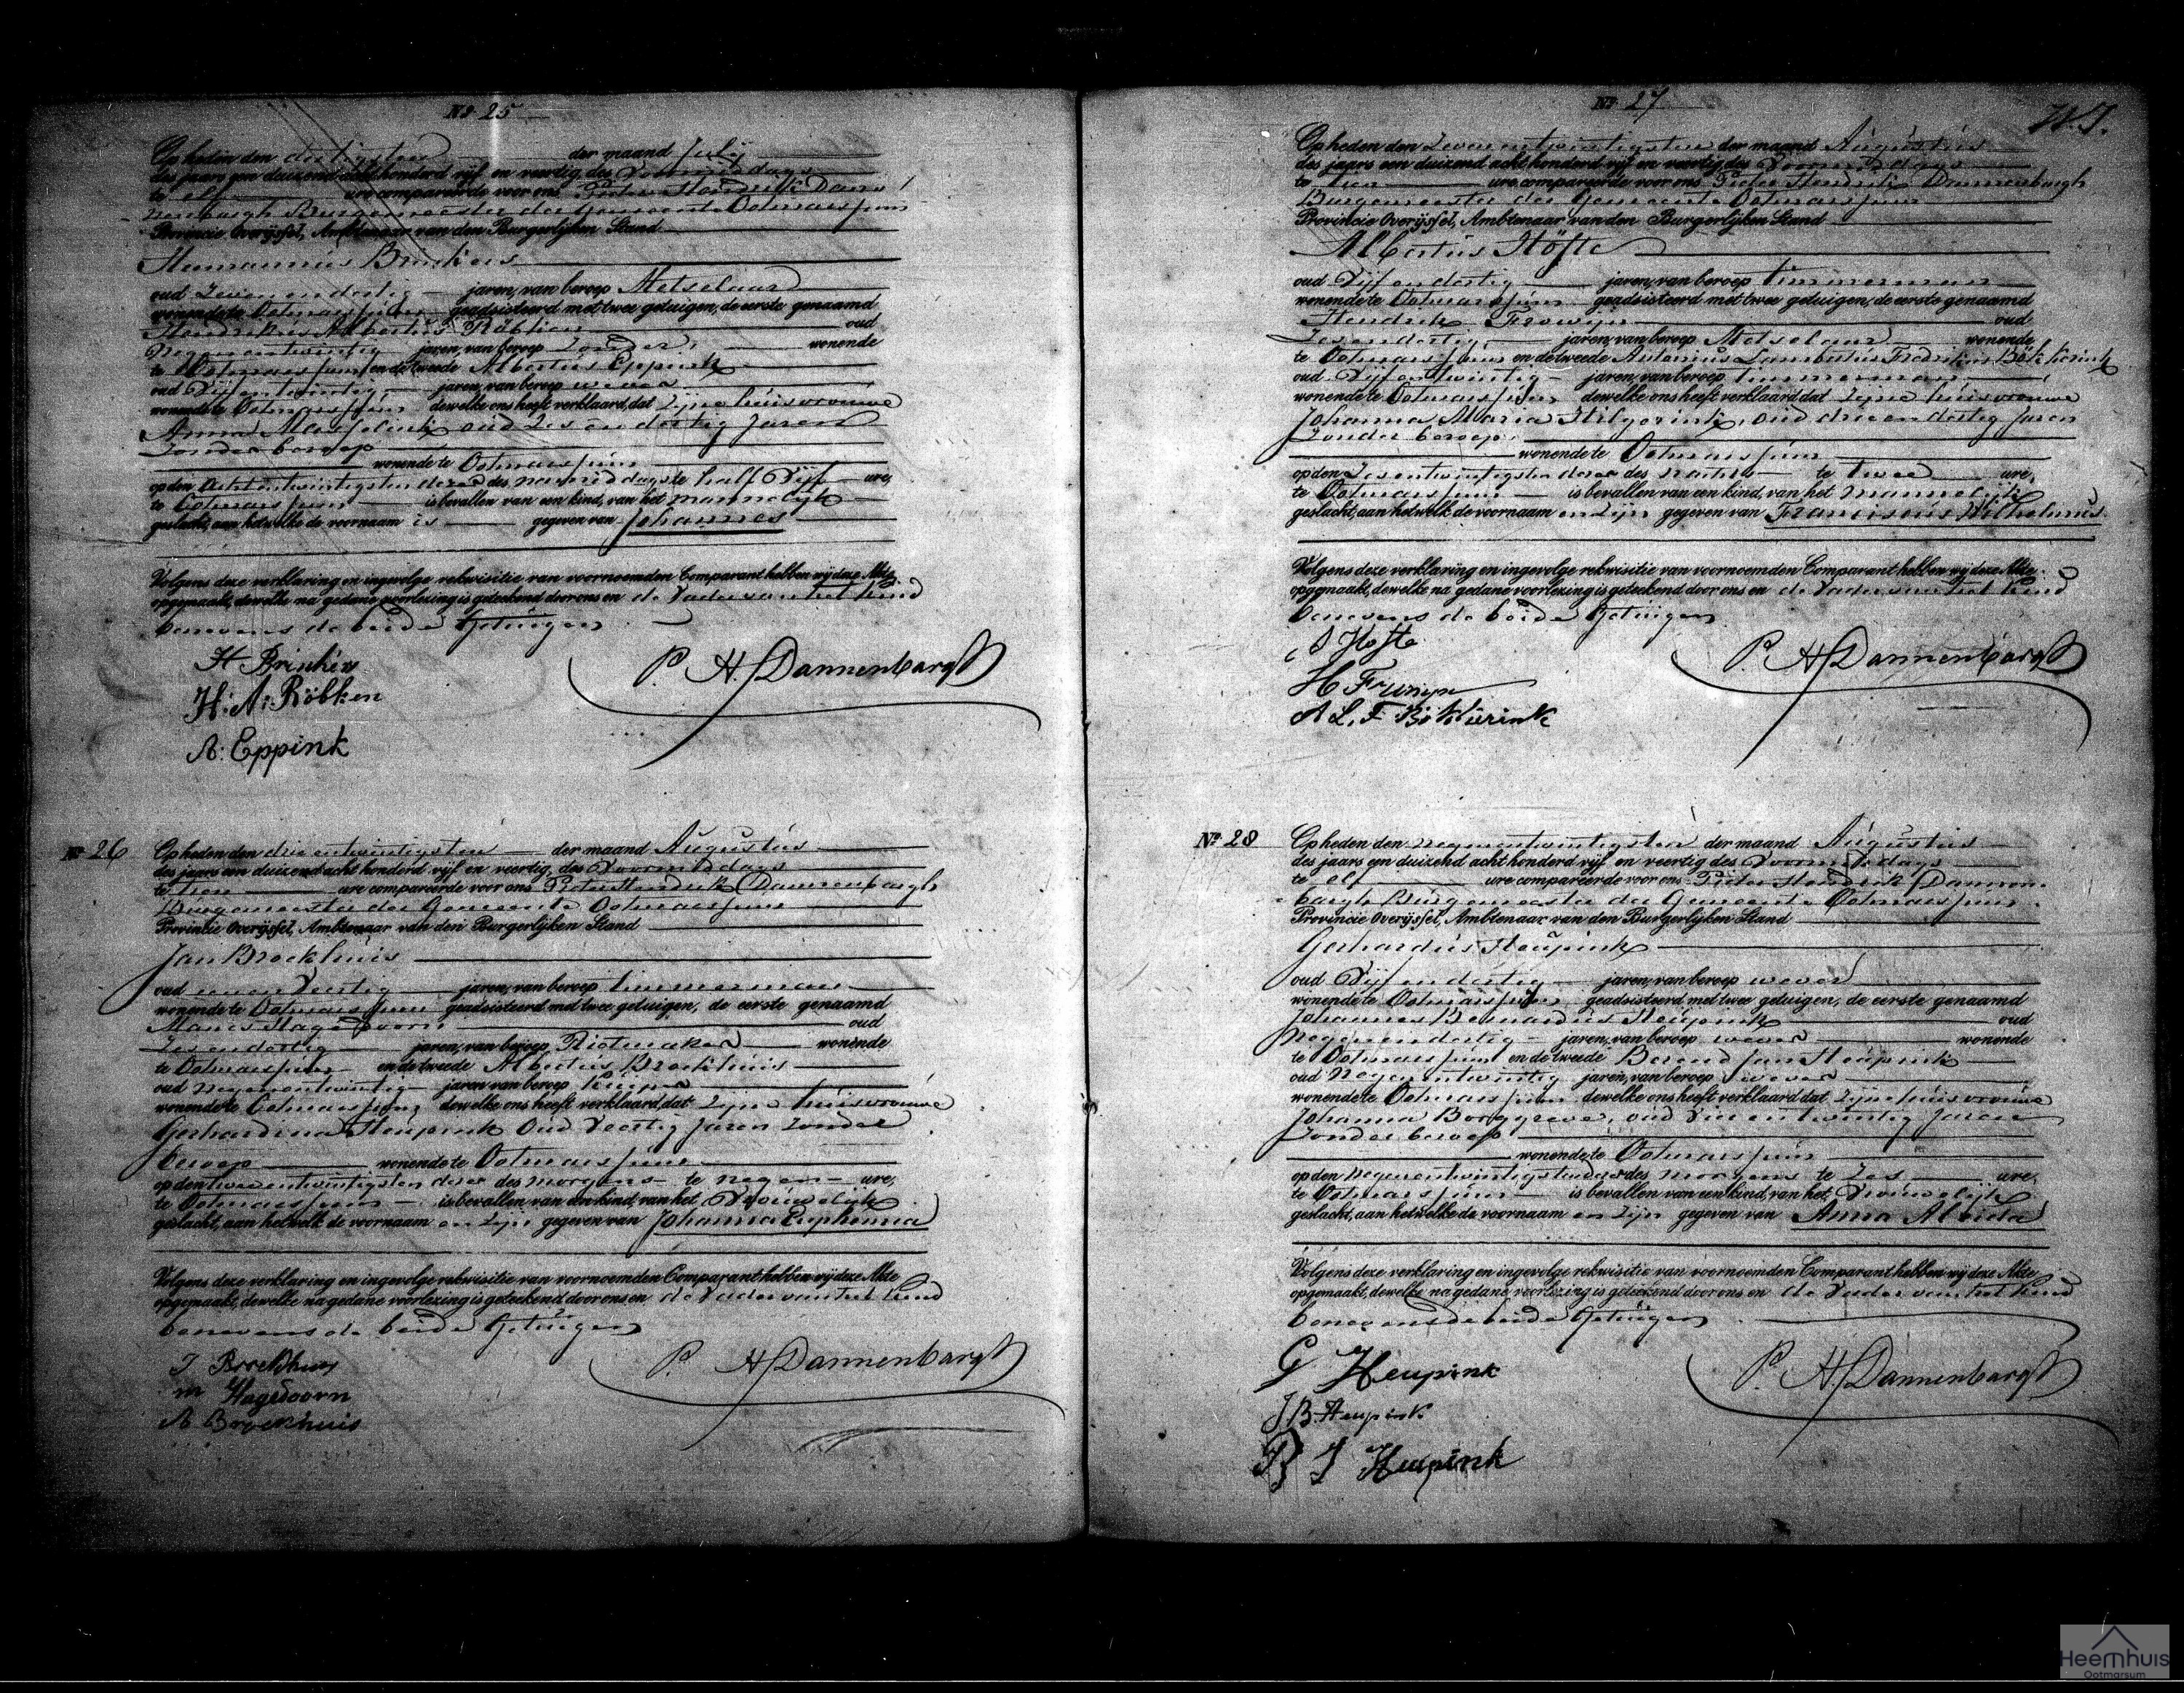 No 25
Op heden den dertigsten der maand July
des jaars een duizend acht honderd vijf en veertig, des Voormiddags
te elf ure compareerde voor ons Pieter Hendrik Dan
nenbargh Burgemeester der Gemeente Ootmarssum
Provincie Overijssel, Ambtenaar van den Burgerlijken Stand
Hermannus Brinkers
oud Zeven en dertig jaren, van beroep Metselaar
wonende te Ootmarssum geadsisteerd met twee getuigen, de eerste genaamd
Hendrikus Albertus Röbken oud
Negenentwintig jaren, van beroep Zonder wonende
te Ootmarssum en de tweede Albertus Eppink
oud Vijf en twintig jaren, van beroep wever
wonende te Ootmarssum dewelke ons heeft verklaard, dat Zijne huisvrouwe
Anna oud Zes en dertig Jaren
Zonder beroep
wonende te Ootmarssum
op den Achtentwintigsten dezer des namiddags te half Vijf ure,
te Ootmarssum is bevallen van een kind, van het mannelijk
geslacht, aan hetwelke de voornaam is gegeven van Johannes
Volgens deze verklaring en ingevolge rekwisitie van voornoemden Comparant hebben wij deze Akte
opgemaakt, dewelke na gedane voorlezing is geteekend door ons en de Vader van het kind
benevens de beide Getuigen
H Brinkers
P. H. Dannenbargh
H: A: Röbken
A: Eppink
No 26
Op heden den drie entwintigsten der maand Augustus
des jaars een duizend acht honderd vijf en veertig, des Voormiddags
te tien ure compareerde voor ons Pieter Hendrik Dannenbargh
Burgemeester der Gemeente Ootmarssum
Provincie Overijssel, Ambtenaar van den Burgerlijken Stand
Jan Broekhuis
oud een en Veertig jaren, van beroep timmerman
wonende te Ootmarssum geadsisteerd met twee getuigen, de eerste genaamd
Manes Hagedoorn oud
Zes en dertig jaren, van beroep Rietmaker wonende
te Ootmarssum en de tweede Albertus Broekhuis
oud negenentwintig jaren van beroep kuiper
wonende te Ootmarssum dewelke ons heeft verklaard, dat Zijne huisvrouwe
Gerhardina Heupink Oud Veertig Jaren Zonder
beroep wonende te Ootmarssum
op den twee entwintigsten dezer des morgens te negen ure,
te Ootmarssum is bevallen van een kind, van het Vrouwelijk
geslacht, aan hetwelk de voornaam en Zijn gegeven van Johanna Euphemia
Volgens deze verklaring en ingevolge rekwisitie van voornoemden Comparant hebben wij deze Akte
opgemaakt, dewelke na gedane voorlezing is geteekend door ons en de Vader van het kind
benevens de beide Getuigen
J Broekhuis
P. H. Dannenbargh
m Hagedoorn
A Broekhuis
No 27
Op heden den Zeven entwintigsten der maand Augustus
des jaars een duizend acht honderd vijf en veertig des Voormiddags
te tien ure compareerde voor ons Pieter Hendrik Dannenbargh
Burgemeester der Gemeente Ootmarssum
Provincie Overijssel, Ambtenaar van den Burgerlijken Stand
Albertus Höfte
oud Vijf en dertig jaren, van beroep timmerman
wonende te Ootmarssum geadsisteerd met twee getuigen, de eerste genaamd
Hendrik Frowijn oud
Zes en dertig jaren, van beroep Metselaar wonende
te Ootmarssum en de tweede Antonius Lambertus Fredrikus
oud Vijf en twintig jaren, van beroep timmerman
wonende te Ootmarssum dewelke ons heeft verklaard dat Zijne huisvrouwe
Johanna Maria Hilgerink, oud drie en dertig Jaren
Zonder beroep
wonende te Ootmarssum
op den Zes entwintigsten dezer des nachts te twee ure,
te Ootmarssum is bevallen van een kind, van het mannelijk
geslacht, aan hetwelk de voornaam en Zijn gegeven van Franciscus Wilhelmus
Volgens deze verklaring en ingevolge rekwisitie van voornoemden Comparant hebben wij deze Akte
opgemaakt, dewelke na gedane voorlezing is geteekend door ons en de Vader van het kind
benevens de beide Getuigen
A Hofte
P. H. Dannenbargh
H Frowijn
A. L. F.
No 28
Op heden den negenentwintigsten der maand Augustus
des jaars een duizend acht honderd vijf en veertig des Voormiddags
te elf ure compareerde voor ons Pieter Hendrik Dannen
bargh Burgemeester der Gemeente Ootmarssum
Provincie Overijssel, Ambtenaar van den Burgerlijken Stand
Gerhardus Heupink
oud Vijf en dertig jaren, van beroep wever
wonende te Ootmarssum geadsisteerd met twee getuigen, de eerste genaamd
Johannes Bernardus Heupink oud
Negen en dertig jaren, van beroep wever wonende
te Ootmarssum en de tweede Berend Jan Heupink
oud Negen entwintig jaren, van beroep wever
wonende te Ootmarssum dewelke ons heeft verklaard dat Zijne huisvrouwe
Johanna Borggreve, oud Vier en twintig Jaren
Zonder beroep
wonende te Ootmarssum
op den Negen entwintigsten dezer des morgens te Zes ure,
te Ootmarssum is bevallen van een kind, van het Vrouwelijk
geslacht, aan hetwelke de voornaam en Zijn gegeven van Anna Aleida
Volgens deze verklaring en ingevolge rekwisitie van voornoemden Comparant hebben wij deze Akte
opgemaakt, dewelke na gedane voorlezing is geteekend door ons en de Vader van het kind
benevens de beide Getuigen
G Heupink
P. H. Dannenbargh
J B. Heupink
B J Heupink
Heemhuis
Ootmarsum